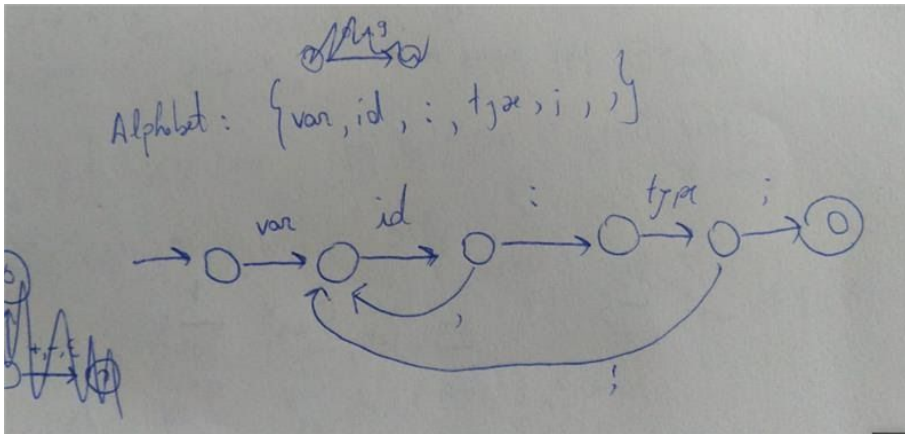 Alphabet: {var, id, :, type, ;, ,}
var id : type ;
,
;